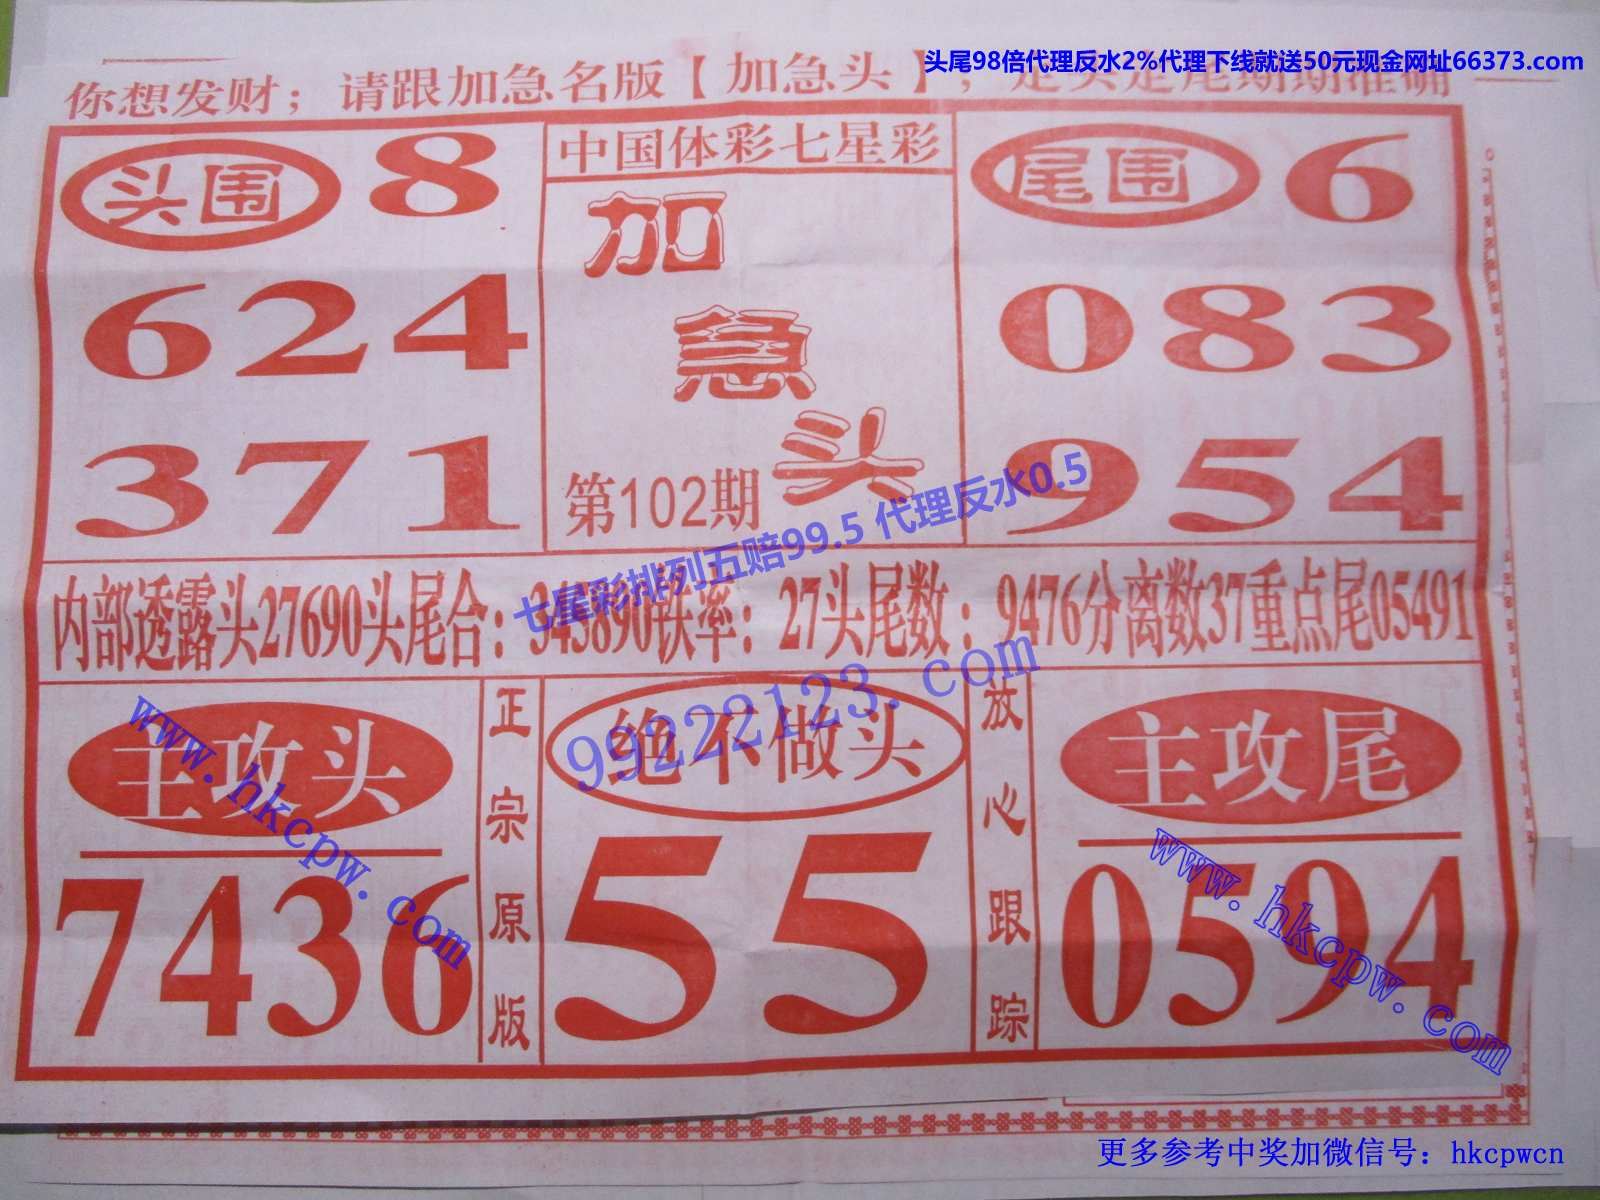 头尾98倍代理反水2%代理下线就送50元现金网址66373.com
你想发财；请跟加急名版【加急头】，定头定尾期期准确
头围 8
624
371
中国体彩七星彩
加急头
第102期
尾围 6
083
954
七星彩排列五赔99.5 代理反水0.5
内部透露头27690头尾合：345890铁率：27头尾数：9476分离数37重点尾05491
99222123.com
主攻头
7436
正宗原版
绝不做头
55
放心跟踪
主攻尾
0594
www.hkcpw.com
www.hkcpw.com
更多参考中奖加微信号：hkcpwcn